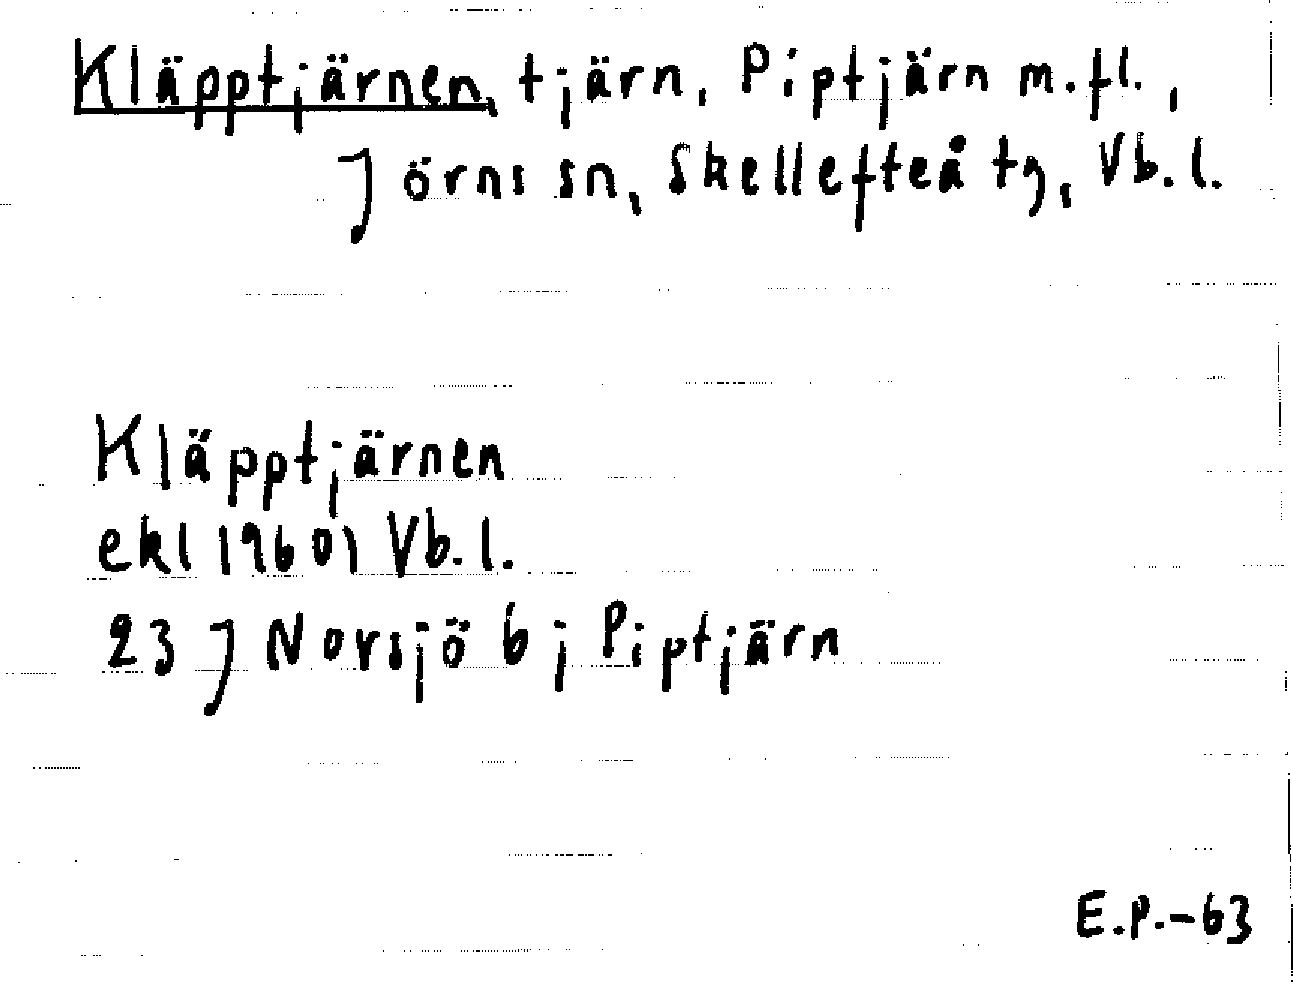 Kläpptjärnen, tjärn, Piptjärn m.fl.,
Jörns sn, Skellefteå tg, Vb.l.
Kläpptjärnen
ekl 1960) Vb.l.
23 J Norsjö 6 j Piptjärn
E.P.-63